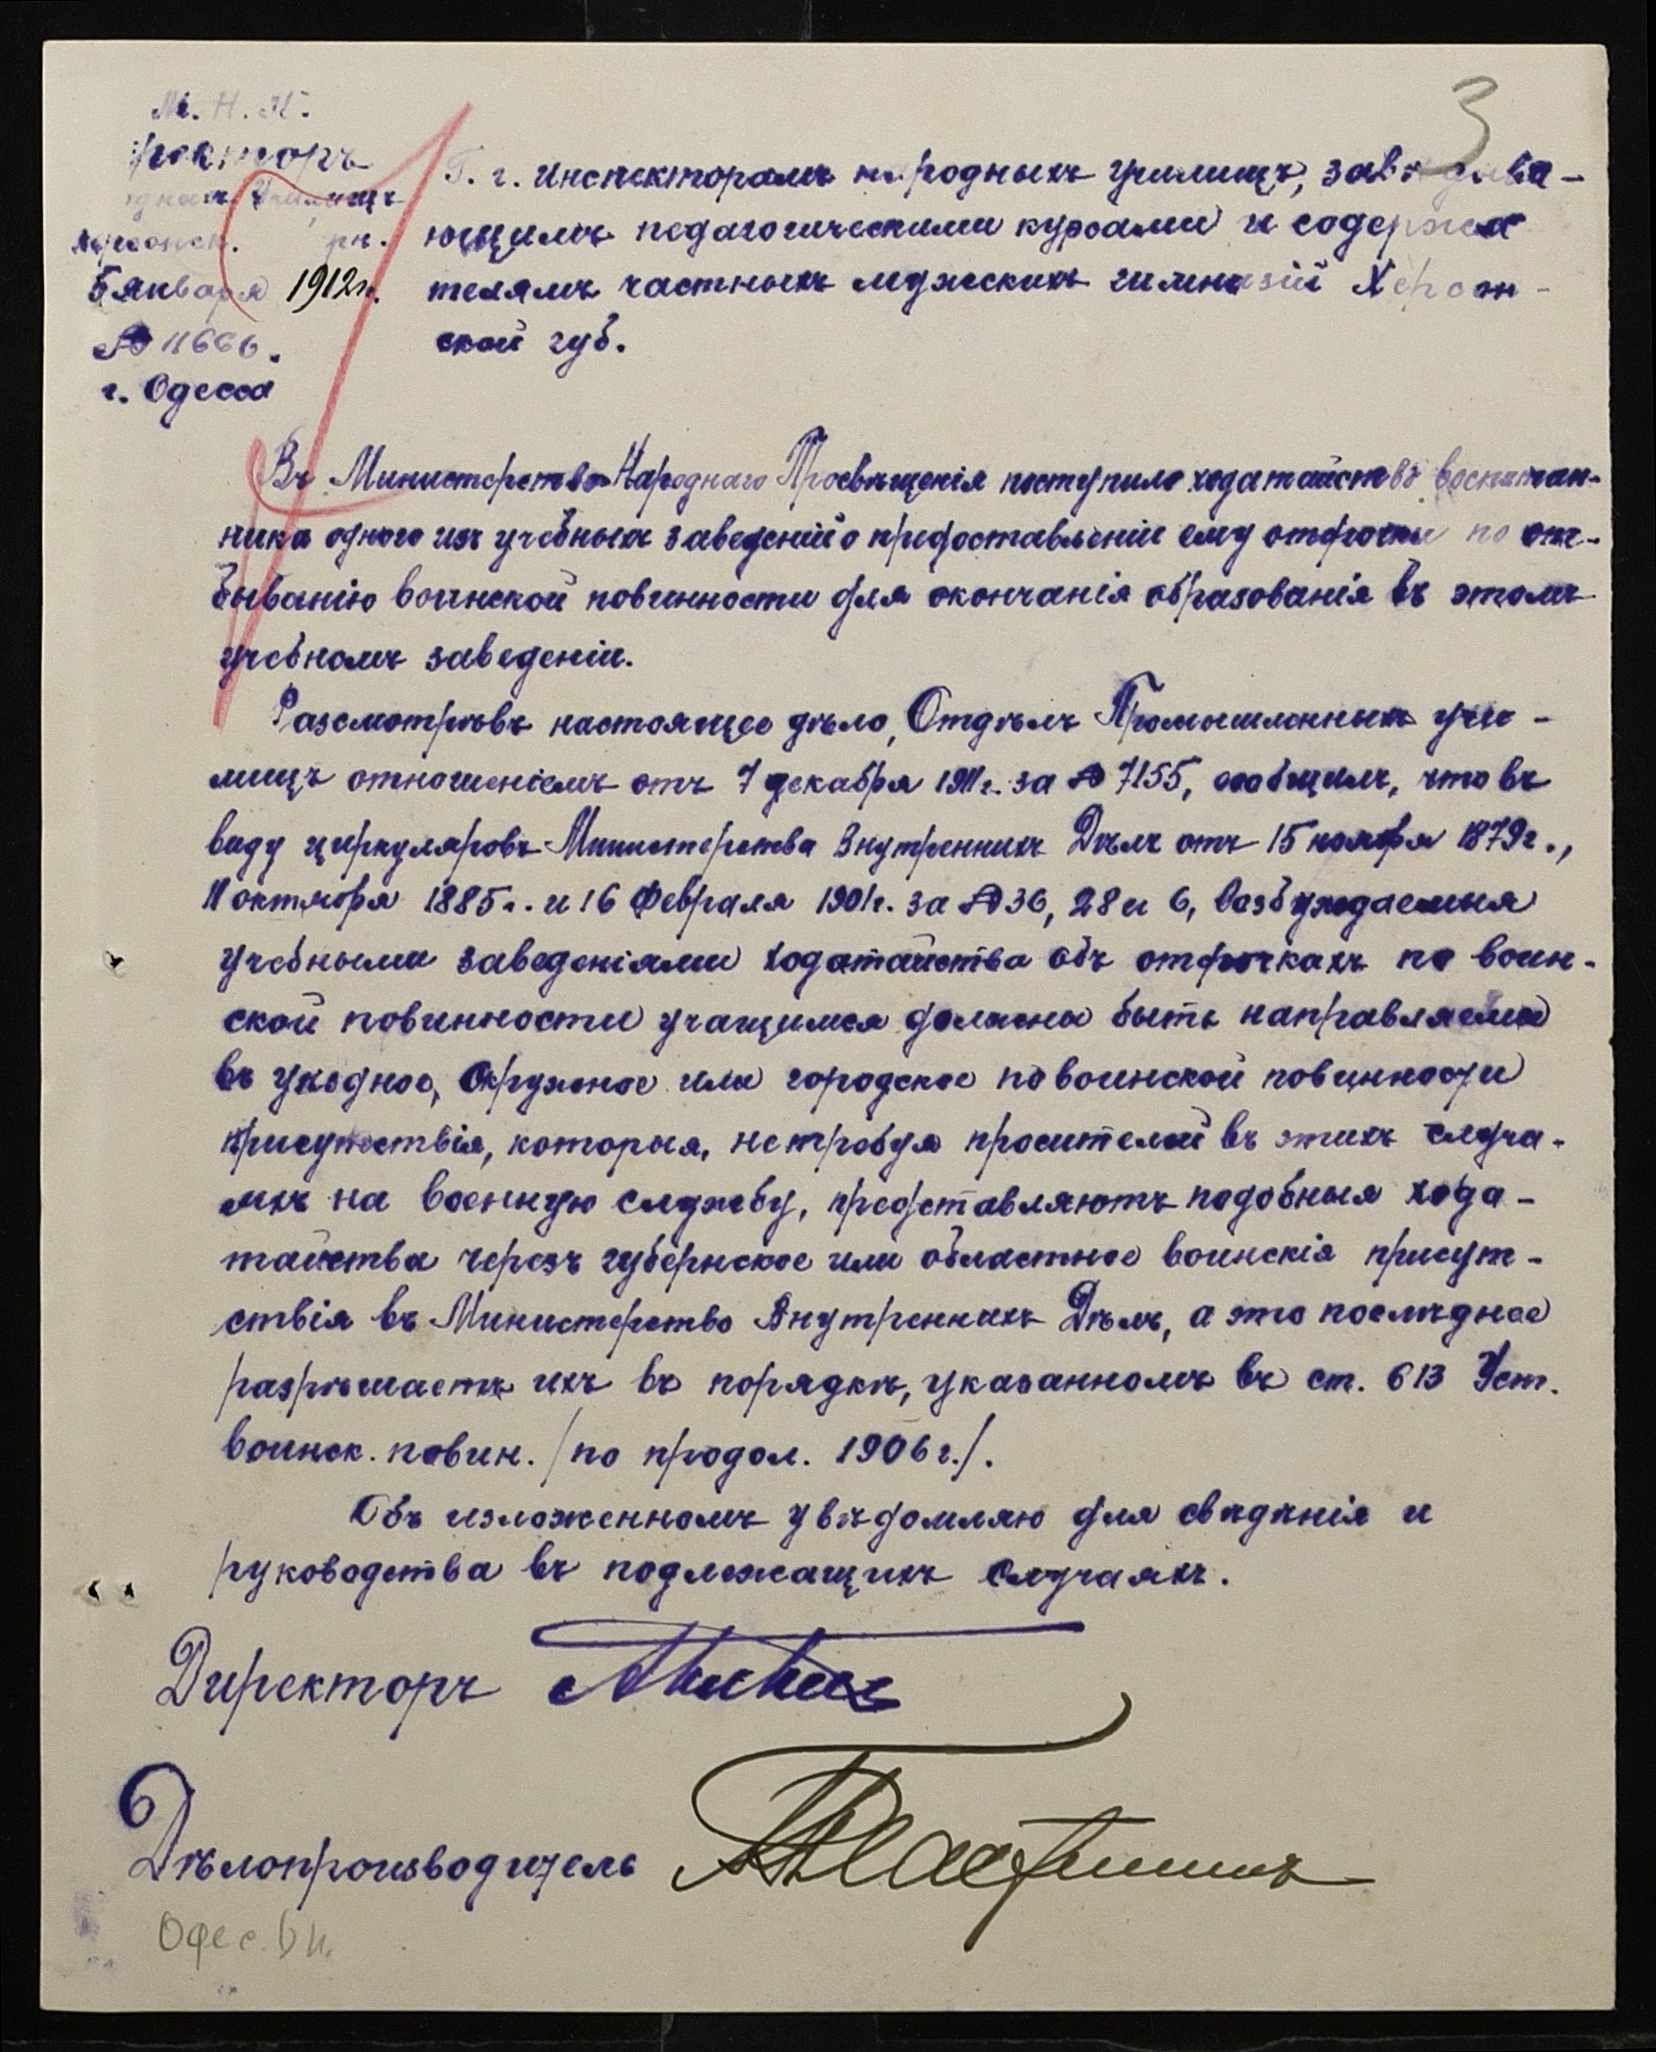 3
М. Н. П.
Директоръ
Училищъ
Херсонск.
5 января 1912 г.
№ 11666.
г. Одесса
Г. г. Инспекторамъ народныхъ училищъ, завѣдыва-
ющимъ педагогическими курсами и содержа
телямъ частныхъ мужскихъ гимназій Херсон-
ской губ.
Въ Министерство Народнаго Просвѣщенія поступило ходатайство воспитан-
ника одного изъ учебныхъ заведеній о предоставленіи ему отсрочки по от-
быванію воинской повинности для окончанія образованія въ этомъ
учебномъ заведеніи.
Разсмотрѣвъ настоящее дѣло, Отдѣлъ Промышленныхъ учи-
лищъ отношеніемъ отъ 7 декабря 1911 г. за № 7155, сообщилъ, что въ
виду циркуляровъ Министерства Внутреннихъ Дѣлъ отъ 15 ноября 1879 г.,
11 октября 1885 г. и 16 Февраля 1901 г. за № 36, 28 и 6, возбуждаемыя
учебными заведеніями ходатайства объ отсрочкахъ по воин-
ской повинности учащимся должны быть направляемы
въ уѣздное, окружное или городское по воинской повинности
присутствія, которыя, не требуя просителей въ этихъ случа-
яхъ на военную службу, представляютъ подобныя хода-
тайства черезъ губернское или областное воинскія присут-
ствія въ Министерство Внутреннихъ Дѣлъ, а это послѣднее
разрѣшаетъ ихъ въ порядкѣ, указанномъ въ ст. 613 Уст.
воинск. повин. /по продол. 1906 г./.
Объ изложенномъ увѣдомляю для свѣдѣнія и
руководства въ подлежащихъ случаяхъ.
Директоръ
Дѣлопроизводитель